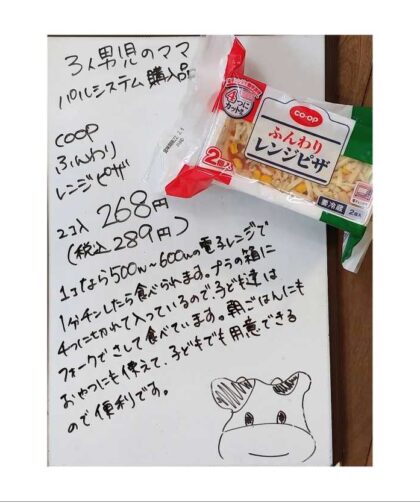 3人男児のママ
パルシステム購入品
COOP
ふんわり
レンジピザ
2コ入 268円
(税込289円)
1コなら500w~600wの電子レンジで
1分チンしたら食べられます。プラの箱に
4つに切れて入っているので、子ども達は
フォークでさして食べています。朝ごはんにも
おやつにも使えて、子どもでも用意できる
ので便利です。
4つに
カット
co・op
ふんわり
レンジピザ
2個入
要冷蔵
2個入